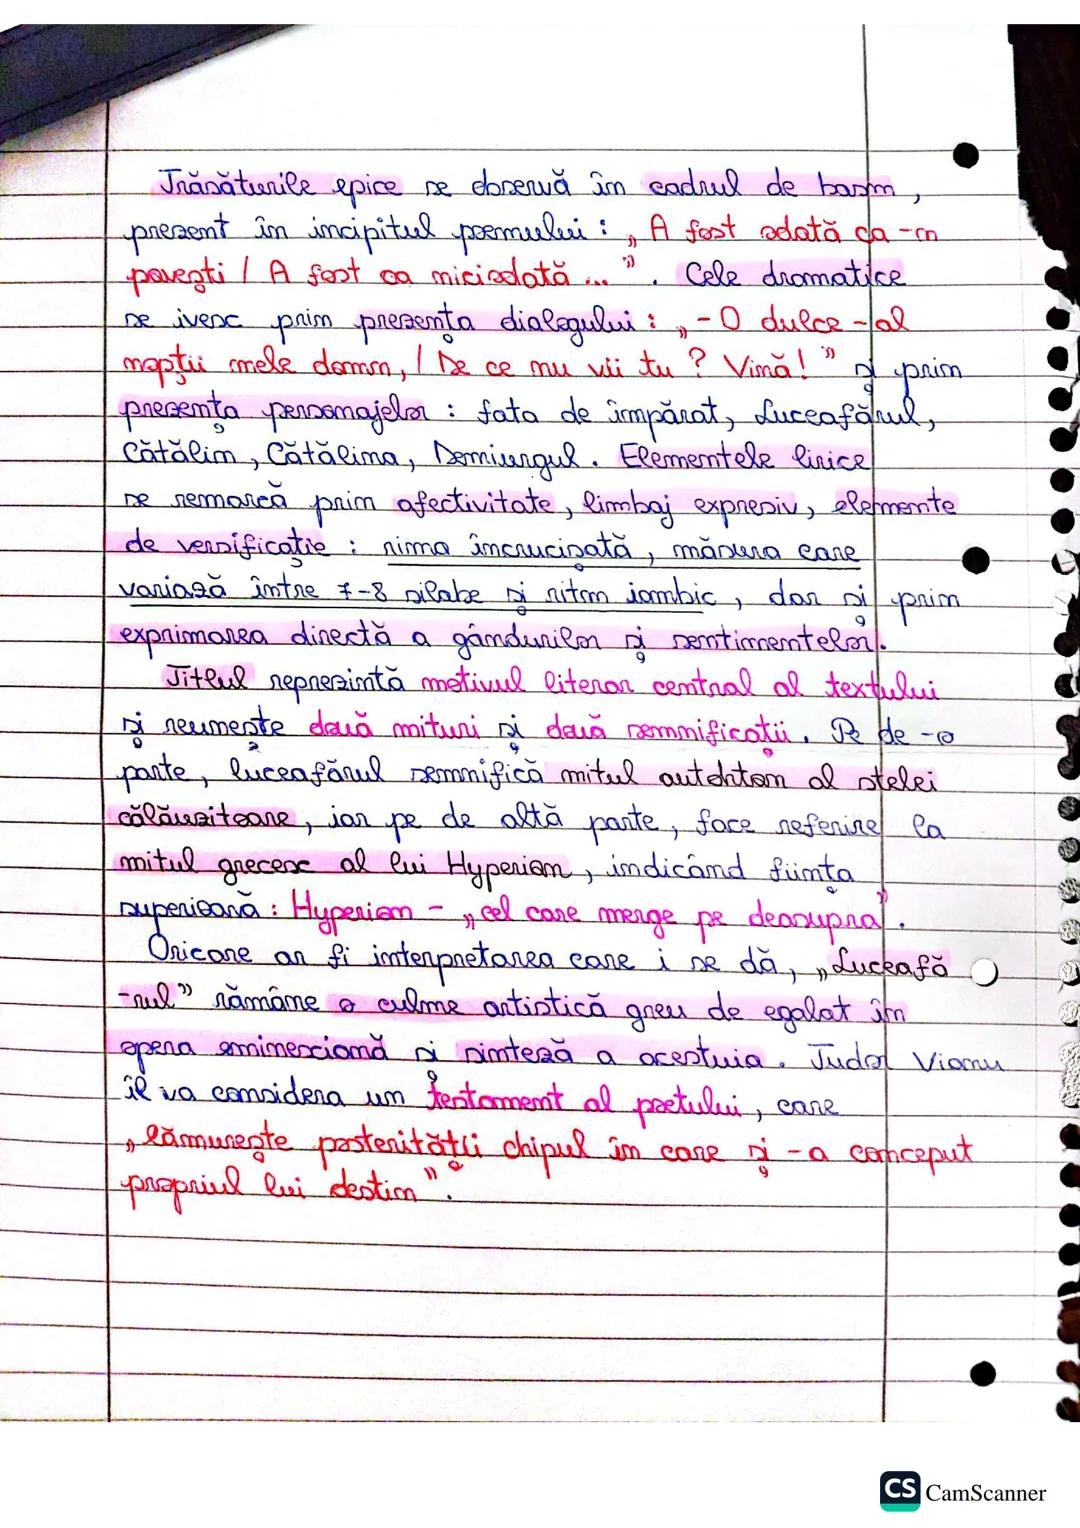 Trăsăturile epice se observă în cadrul de basm,
prezent în incipitul poemului: „A fost odată ca-n
povești / A fost ca niciodată...". Cele dramatice
se ivesc prin prezența dialogului: „-O dulce-al
nopții mele domn, / De ce nu vii tu? Vină!" și prin
prezența personajelor: fata de împărat, Luceafărul,
Cătălin, Cătălina, Demiurgul. Elementele lirice
se remarcă prin afectivitate, limbaj expresiv, elemente
de versificație: rima încrucișată, măsura care
variază între 7-8 silabe și ritm iambic, dar și prin
exprimarea directă a gândurilor și sentimentelor.
Titlul reprezintă motivul literar central al textului
și reunește două mituri și două semnificații. Pe de-o
parte, luceafărul semnifică mitul autohton al stelei
călăuzitoare, iar pe de altă parte, face referire la
mitul grecesc al lui Hyperion, indicând ființa
superioară: Hyperion - „cel care merge pe deasupra".
Oricare ar fi interpretarea care i se dă, „Luceafă
-rul" rămâne o culme artistică greu de egalat în
opera eminesciană și sinteză a acestuia. Tudor Vianu
îl va considera un testament al poetului, care
„lămurește posterității chipul în care și-a conceput
propriul lui destin".
CS CamScanner